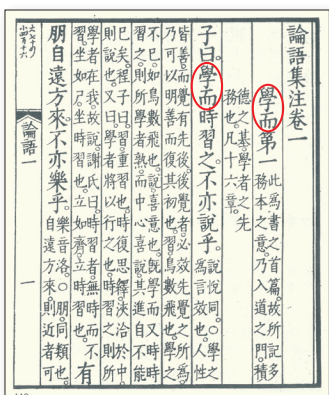 論語集注卷一
學而第一
此爲書之首篇。故所記多
務本之意。乃入道之門。積
德之基。學者之先
務也。凡十六章。
子曰。學而時習之。不亦說乎。
說悅同。○學之
爲言效也。人性
皆善。而覺有先後。後覺者必效先覺之所爲。
乃可以明善而復其初也。習鳥數飛也。學之
不已。如鳥數飛也。說喜意也。旣學而又時時
習之。則所學者熟。而中心喜說。其進自不能
已矣。程子曰。習重習也。時復思繹。浹洽於中。
則說也。又曰。學者將以行之也。時習之。則所
學者在我。故說。謝氏曰。時習者。無時而不
習。坐如尸。坐時習也。立如齊。立時習也。
有
朋自遠方來。不亦樂乎。
樂音洛。○朋同類也。
自遠方來。則近者可
論語一
一